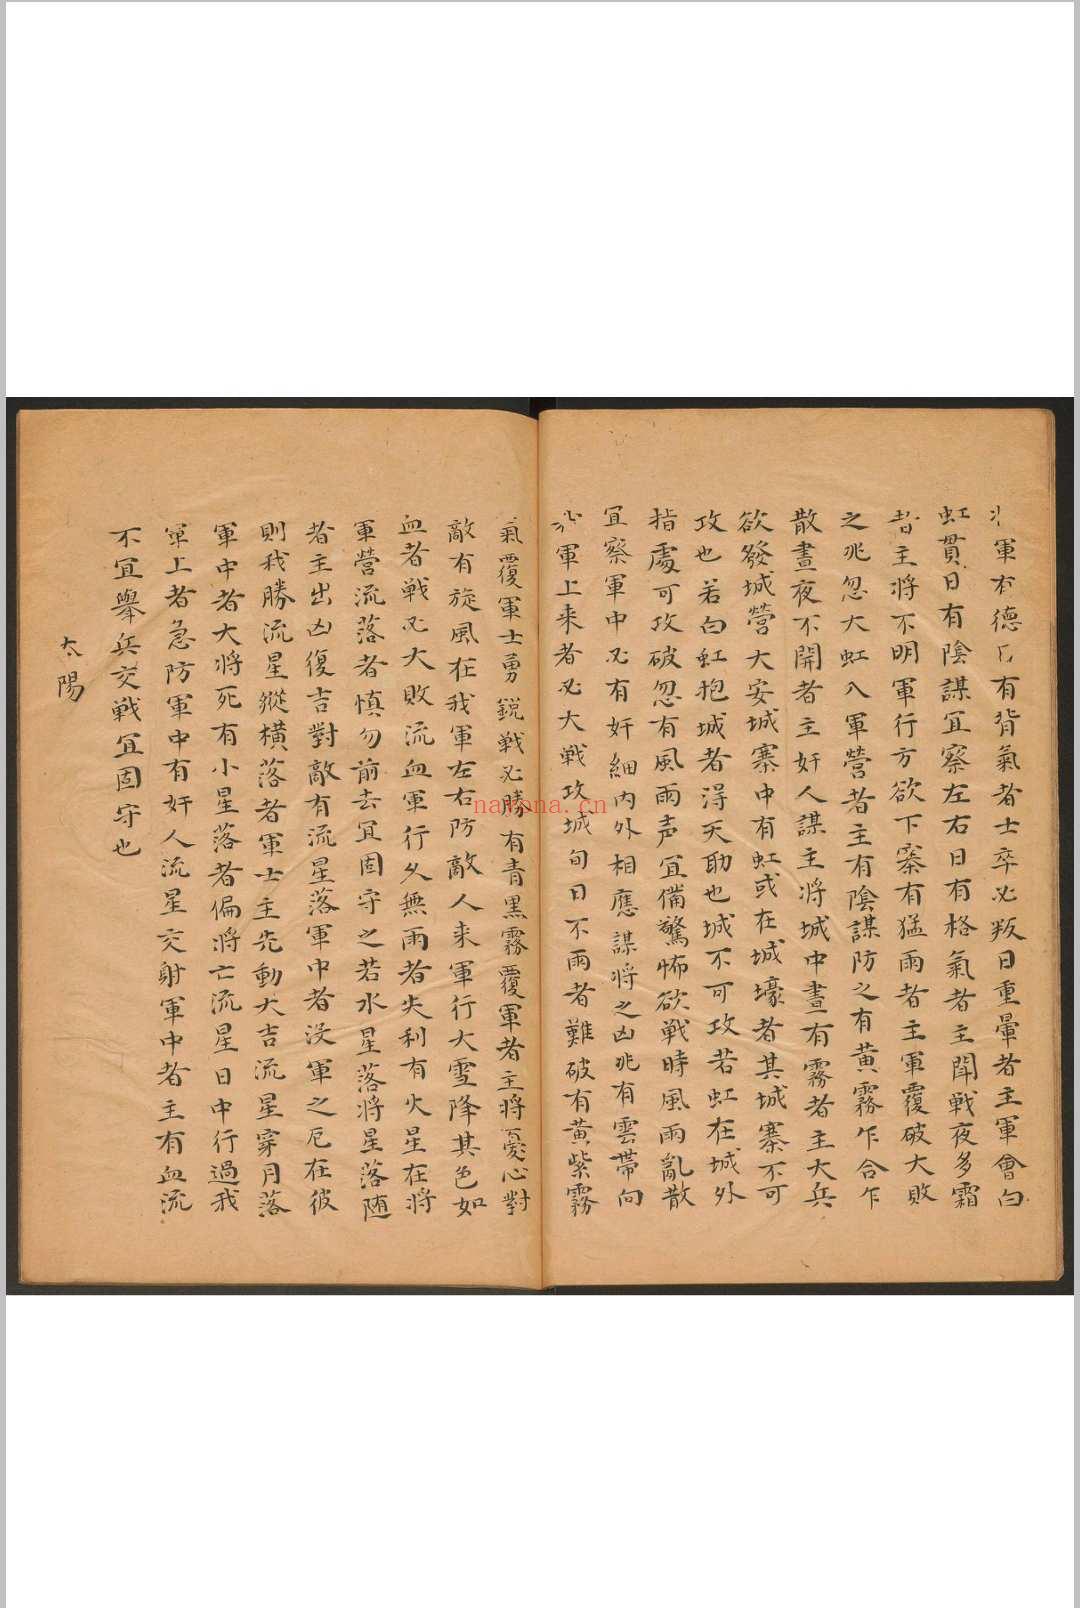 軍有德日有背氣者士卒必叛日重暈者主軍會白
虹貫日有陰謀宜察左右日有格氣者主鬪戰夜多霜
者主將不明軍行方欲下寨有猛雨者主軍覆破大敗
之兆忽大虹入軍營者主有陰謀防之有黄霧乍合乍
散晝夜不開者主奸人謀主將城中晝有霧者主大兵
欲發城營大安城寨中有虹或在城壕者其城寨不可
攻也若白虹抱城者淂天助也城不可攻若虹在城外
指處可攻破忽有風雨声宜俻驚怖欲戦時風雨亂散
宜察軍中必有奸細内外相應謀將之凶兆有雲帶向
我軍上来者必大戦攻城旬日不雨者難破有黄紫霧
氣覆軍士勇鋭戦必勝有青黑霧覆軍者主將憂心對
敵有旋風在我軍左右防敵人来軍行大雪降其色如
血者戦必大敗流血軍行久無雨者失利有火星在將
軍營流落者慎勿前去宜固守之若水星落將星落随
者主出凶復吉對敵有流星落軍中者沒軍之厄在彼
則我勝流星縱横落者軍士主先動大吉流星穿月落
軍中者大將死有小星落者偏將亡流星日中行過我
軍上者急防軍中有奸人流星交射軍中者主有血流
不宜舉兵交戦宜固守也
太陽
nayona.cn